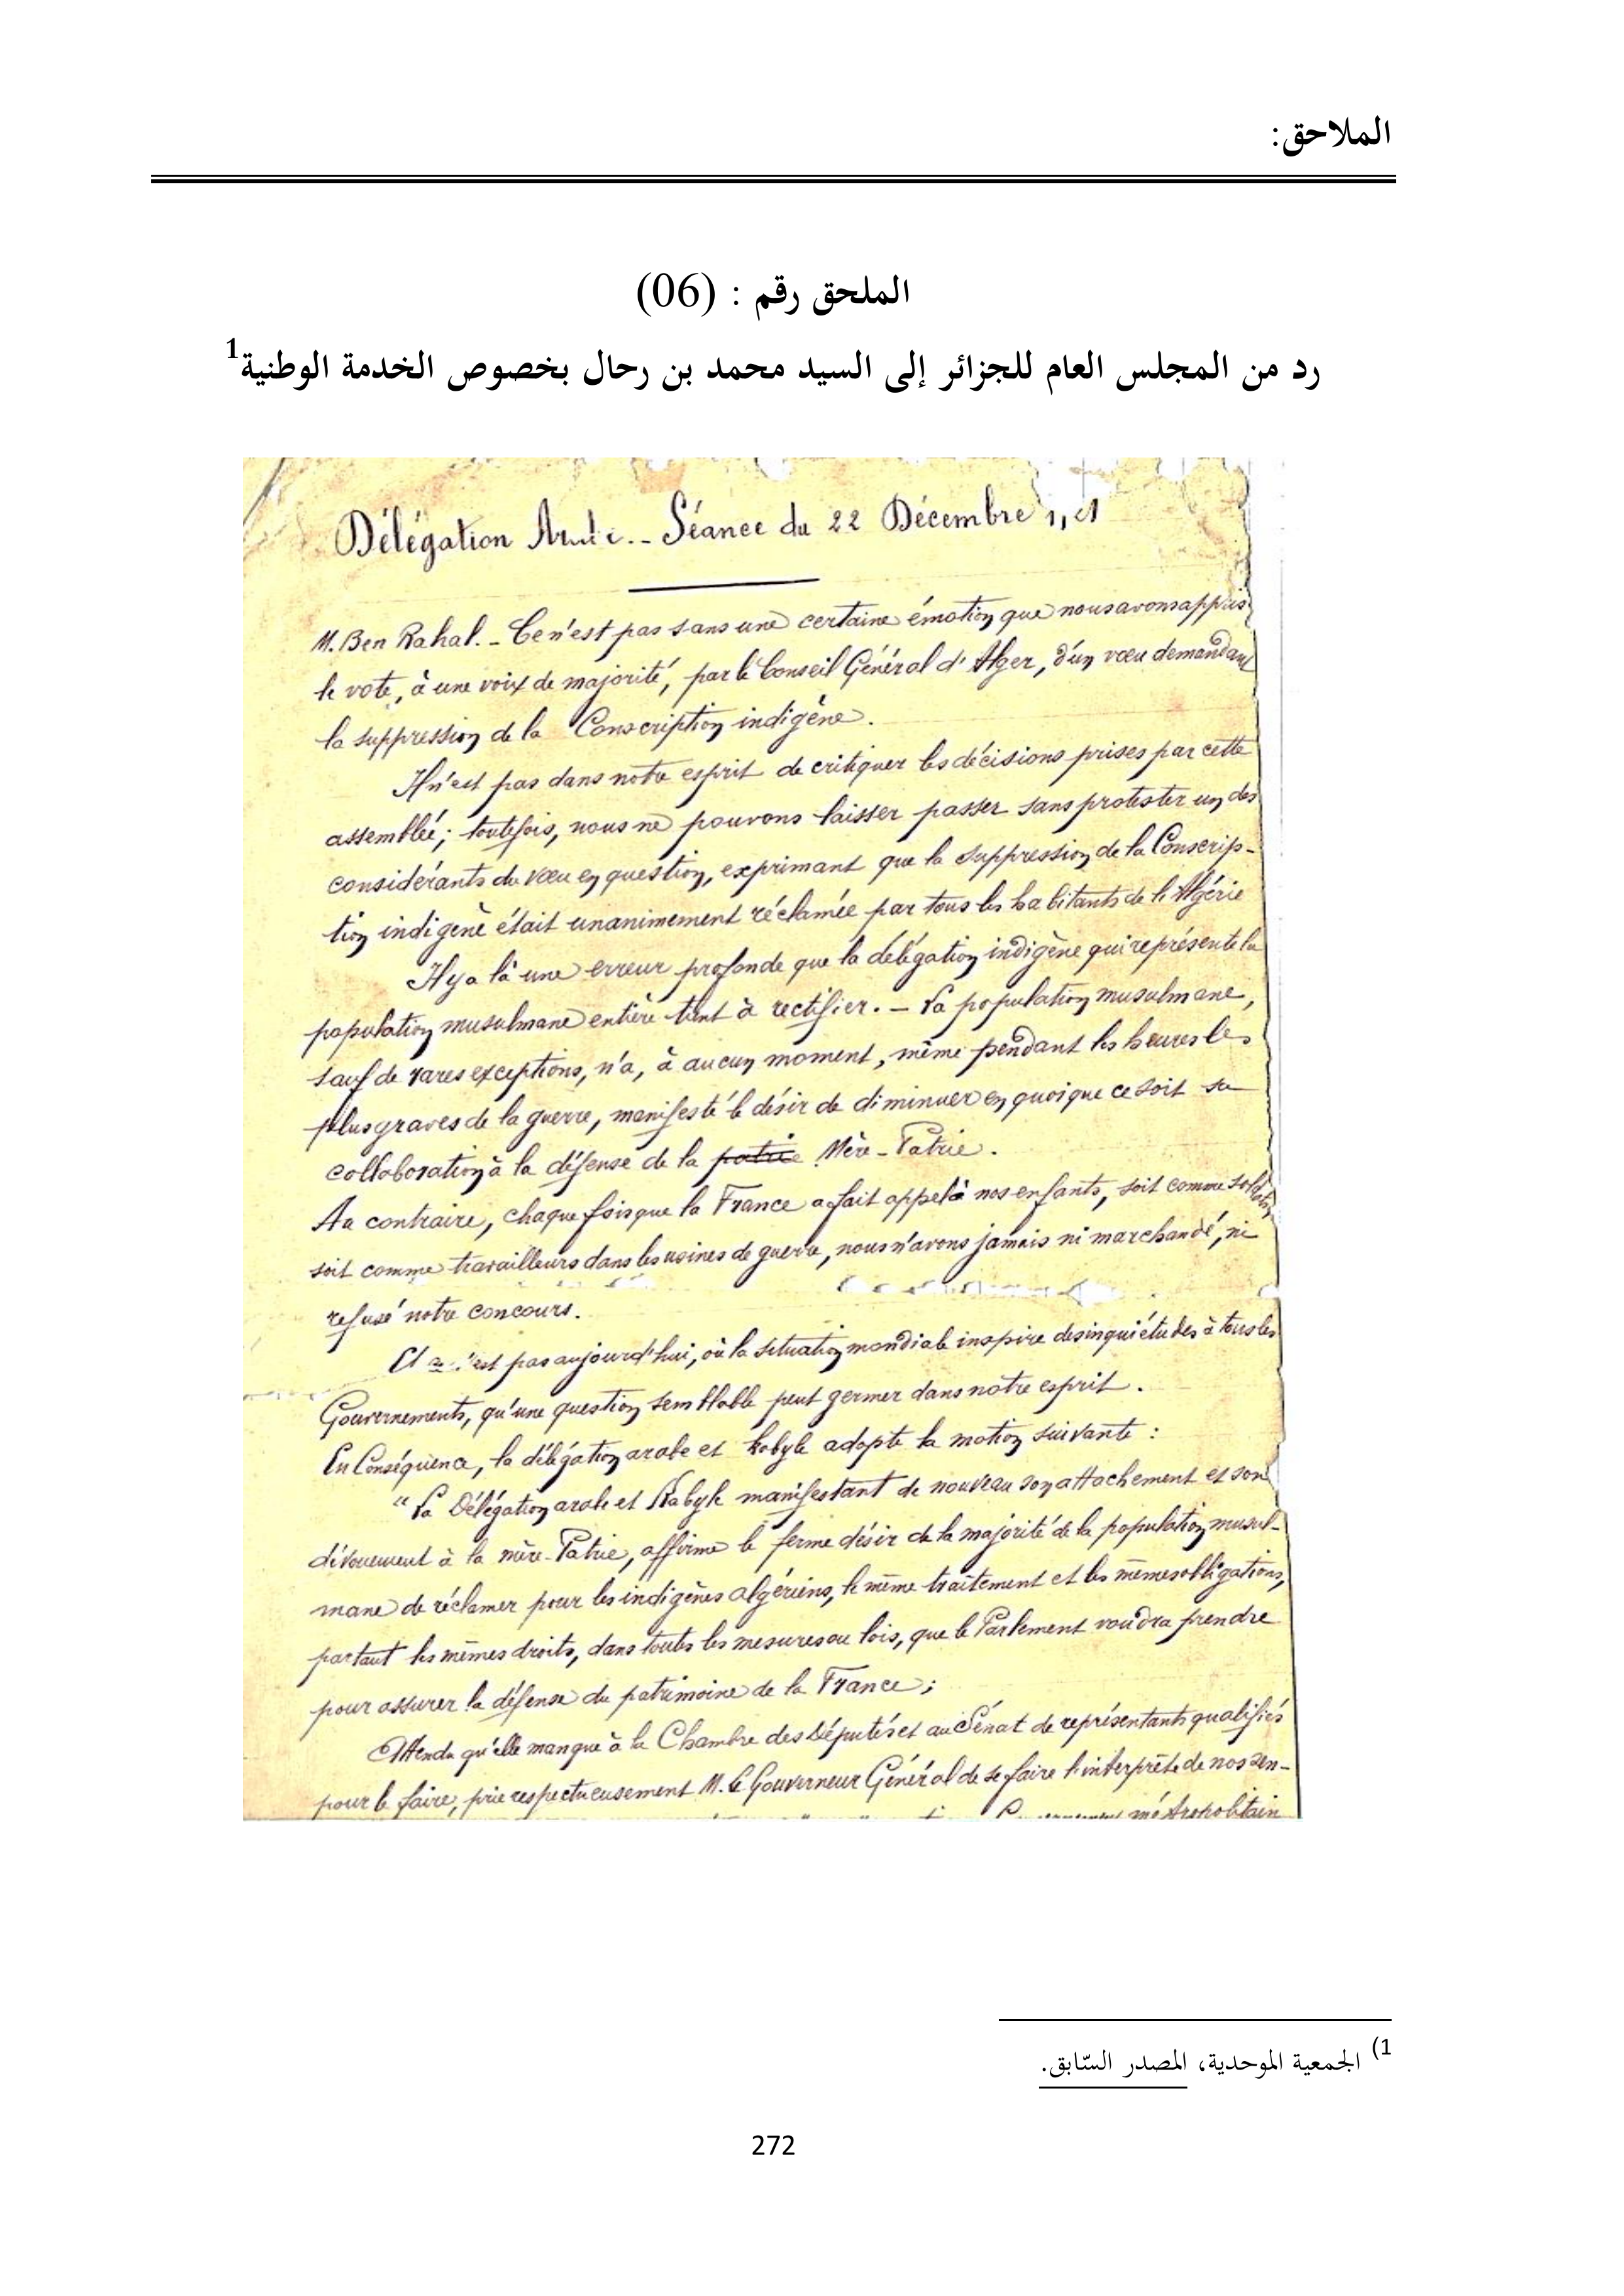 الملاحق:
الملحق رقم : (06)
رد من المجلس العام للجزائر إلى السيد محمد بن رحال بخصوص الخدمة الوطنية1
Délégation – Séance du 22 Décembre
M. Ben Rahal. – Ce n'est pas sans une certaine émotion que nous avons appris
le vote, à une voix de majorité, par le Conseil Général d'Alger, d'un vœu demandant
la suppression de la Conscription indigène.
Il n'est pas dans notre esprit de critiquer les décisions prises par cette
assemblée; toutefois, nous ne pouvons laisser passer sans protester un des
considérants du vœu en question, exprimant que la suppression de la Conscrip-
tion indigène était unanimement réclamée par tous les habitants de l'Algérie
Il y a là une erreur profonde que la délégation indigène qui représente la
population musulmane entière tient à rectifier. – La population musulmane,
sauf de rares exceptions, n'a, à aucun moment, même pendant les heures les
plus graves de la guerre, manifesté le désir de diminuer en quoi que ce soit sa
collaboration à la défense de la patrie Mère-Patrie.
Au contraire, chaque fois que la France a fait appel à nos enfants, soit comme soldats
soit comme travailleurs dans les usines de guerre, nous n'avons jamais ni marchandé, ni
refusé notre concours.
Et n'est pas aujourd'hui, où la situation mondiale inspire des inquiétudes à tous les
Gouvernements, qu'une question semblable peut germer dans notre esprit.
En Conséquence, la délégation arabe et kabyle adopte la motion suivante :
"La Délégation arabe et Kabyle manifestant de nouveau son attachement et son
dévouement à la mère-Patrie, affirme le ferme désir de la majorité de la population musul-
mane de réclamer pour les indigènes algériens, le même traitement et les mêmes obligations,
partant les mêmes droits, dans toutes les mesures ou lois, que le Parlement voudra prendre
pour assurer la défense du patrimoine de la France ;
Attendu qu'elle manque à la Chambre des Députés et au Sénat de représentants qualifiés
pour le faire, prie respectueusement M. le Gouverneur Général de se faire l'interprète de nos sen-
métropolitain
1) الجمعية الموحدية، المصدر السّابق.
272